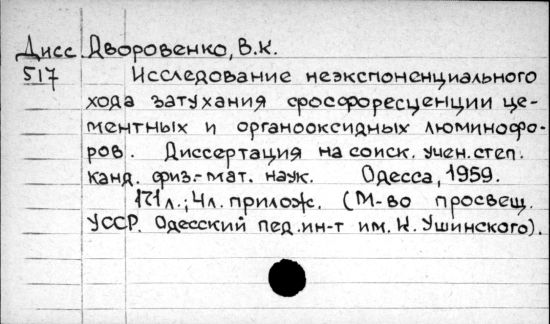 Дисс Дворовенко, В.К.
517 Исследование неэкспоненциального
хода затухания фосфоресценции це-
ментных и органооксидных люминофо-
ров. Диссертация на соиск. учен. степ.
канд. физ.-мат. наук. Одесса, 1959.
171 л.; 4 л. прилож. (М-во просвещ.
УССР. Одесский пед. ин-т им. К. Ушинского).